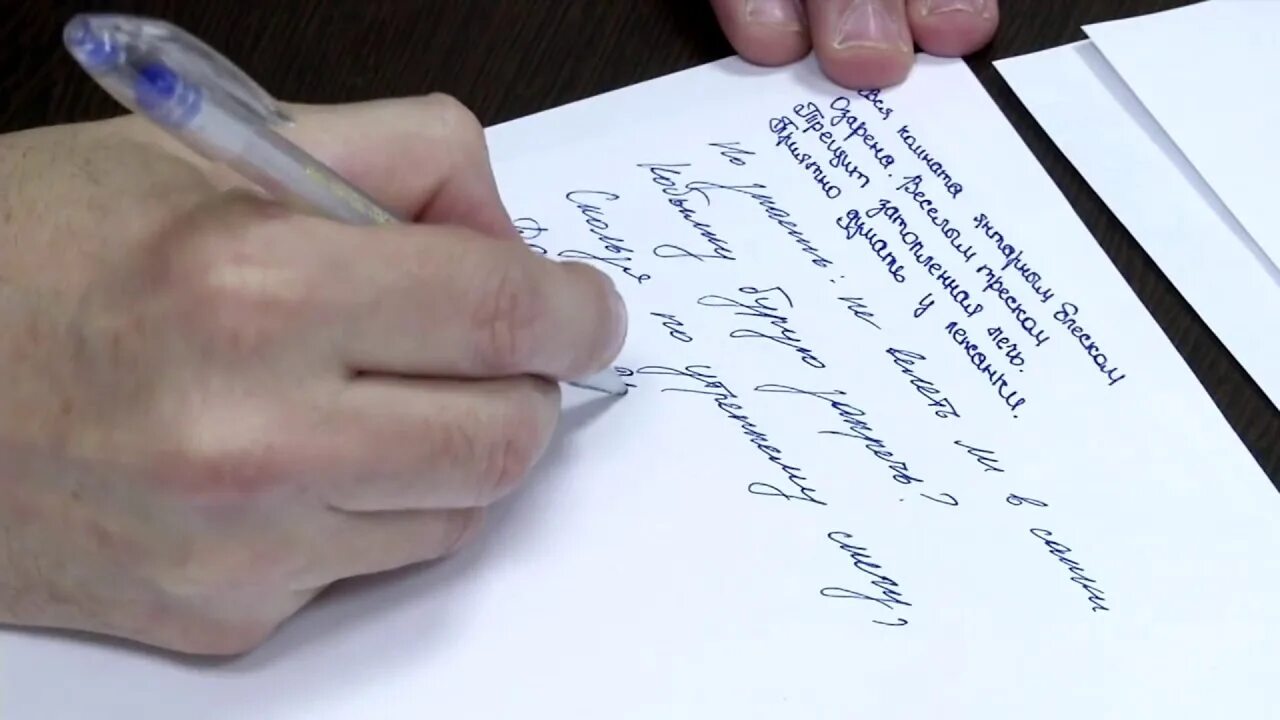 Вся комната янтарным блеском
Озарена. Веселым треском
Трещит затопленная печь.
Приятно думать у лежанки.
Но знаешь: не велеть ли в санки
Кобылку бурую запречь?
Скользя по утреннему снегу